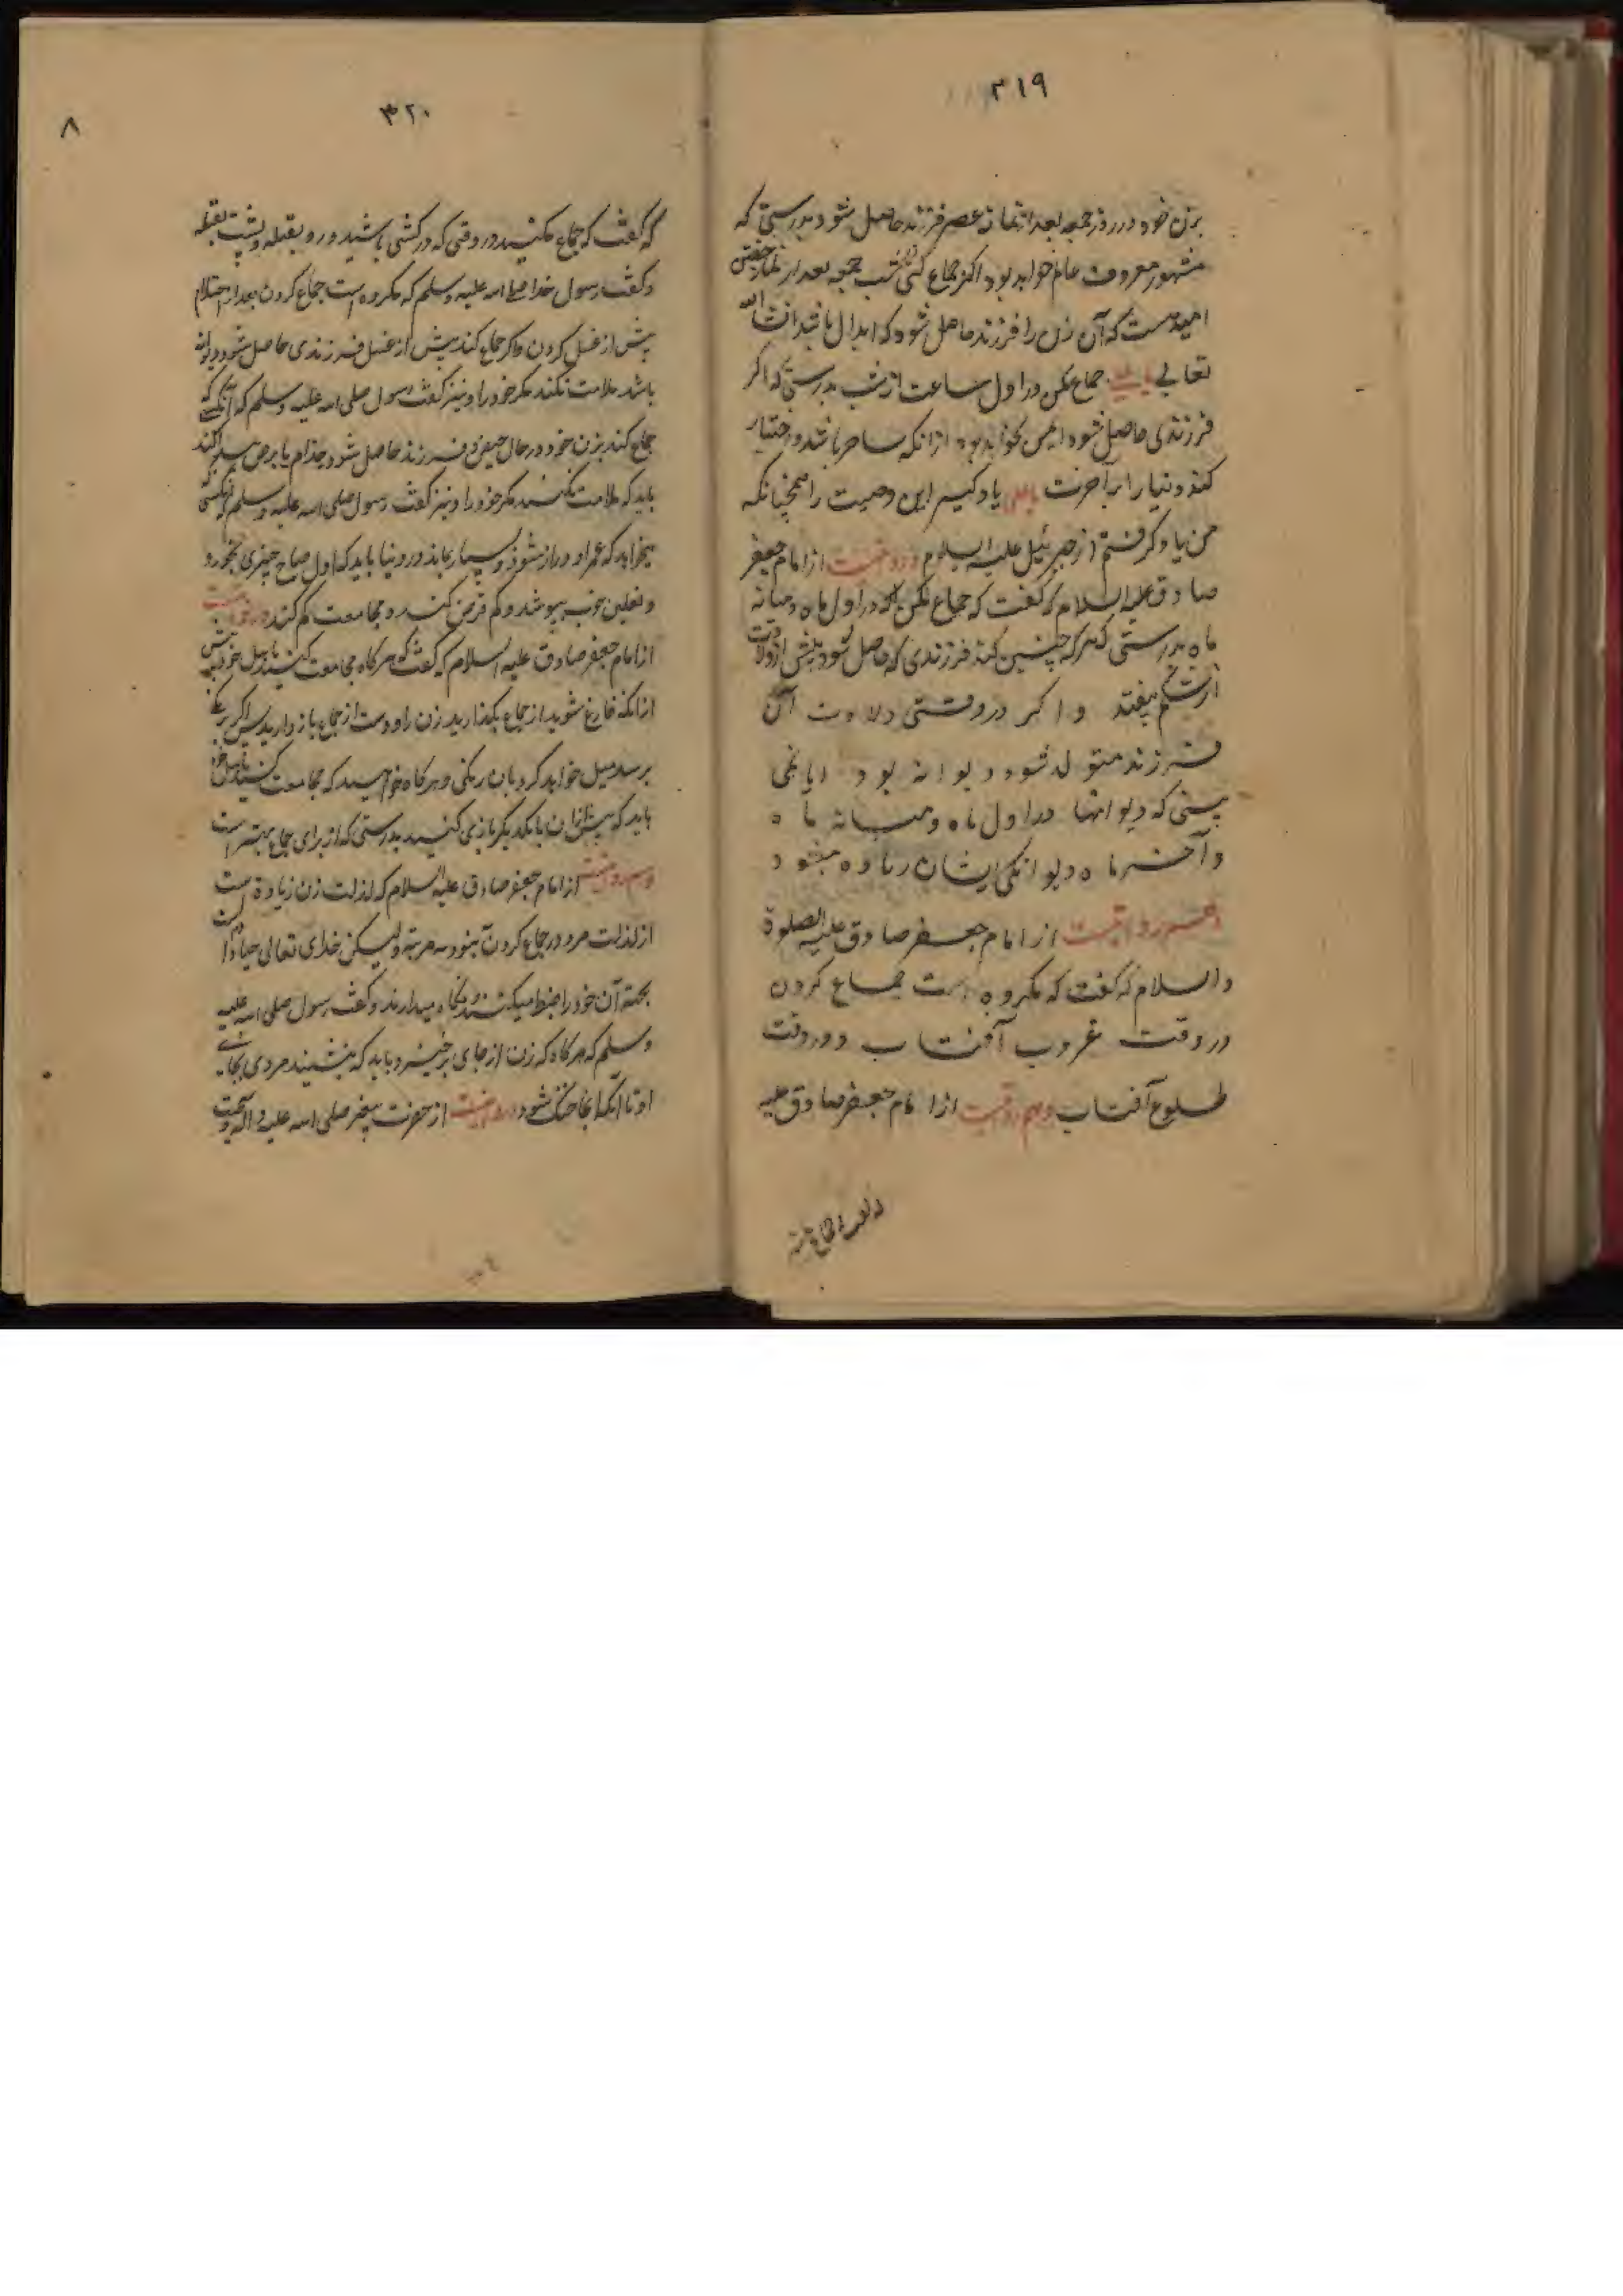 ۳۱۹
بزن خود در روز جمعه بعد از نماز عصر فرزند حاصل شود بدرستی که
مشهور معروف عالم خواهد بود اگر جماع کنی در شب جمعه بعد از نماز خفتن
امید هست که آن زن را فرزند حاصل شود که ابدال باشد انشا الله
تعالی یا علی جماع مکن در اول ساعت از شب بدرستی که اکر
فرزندی حاصل شود ایمن نخواهد بود از انکه ساحر باشد و اختیار
کند دنیا را بر آخرت یا علی یاد کیر این وصیت را همچنانکه
من یاد کرفتم از جبرئیل علیه السلام و روایتست از امام جعفر
صادق علیه السلام که کفت که جماع مکن در اول ماه و میانه
ماه بدرستی که هر که چنین کند فرزندی که حاصل شود پیش از ولادت
از شکم بیفتد و اکر در وقتی ولادت آن
فرزند متولد شود دیوانه بود ایا نمی
بینی که دیوانها در اول ماه و میانه ماه
و آخر ماه دیوانکی ایشان زیاده میشود
و هم روایتست از امام جعفر صادق علیه الصلوة
والسلام که کفت که مکروه است جماع کردن
در وقت غروب آفتاب و در وقت
طلوع آفتاب و هم روایتست از امام جعفر صادق علیه
۳۲۰
۸
که کفت که جماع مکنید در وقتی که در کشتی باشید و رو بقبله و پشت بقبله
و کفت رسول خدا صلی الله علیه وسلم که مکروه است جماع کردن بعد از احتلام
پیش از غسل کردن و اکر جماع کند پیش از غسل فرزندی حاصل شود دیوانه
باشد ملامت نکند مکر خود را و نیز کفت رسول صلی الله علیه وسلم که آنکسی که
جماع کند بزن خود در حال حیض و فرزند حاصل شود جذام یا برص
باید که ملامت نکند مکر خود را و نیز کفت رسول صلی الله علیه وسلم هر کسی که
میخواهد که عمر او دراز شود و بسیار بماند در دنیا باید که اول صباح چیزی بخورد
و نعلین خوب بپوشد و کم قرض کند و مجامعت کم کند و روایتست
از امام جعفر صادق علیه السلام که کفت که هرکاه مجامعت کنید باهل خود پیش
از انکه فارغ شوید از جماع بکذارید زن را و دست از جماع باز دارید پس اکر
برسد میل خواهد کرد بان و هرکاه خواهید که مجامعت کنید باهل خود
باید که پیش از ان با یکدیکر بازی کنید بدرستی که از برای جماع بهتر است
و هم روایتست از امام جعفر صادق علیه السلام که لذت زن زیاده است
از لذت مرد در جماع کردن بنود و نه مرتبه ولیکن خدای تعالی حیا داده است
بجهة آن خود را ضبط میکنند و نکاه میدارند و کفت رسول صلی الله علیه
وسلم که هرکاه که زن از جای برخیزد باید که ننشیند مردی بجای
او تا آنکه آنجا خنک شود و روایتست از حضرت پیغمبر صلی الله علیه و آله